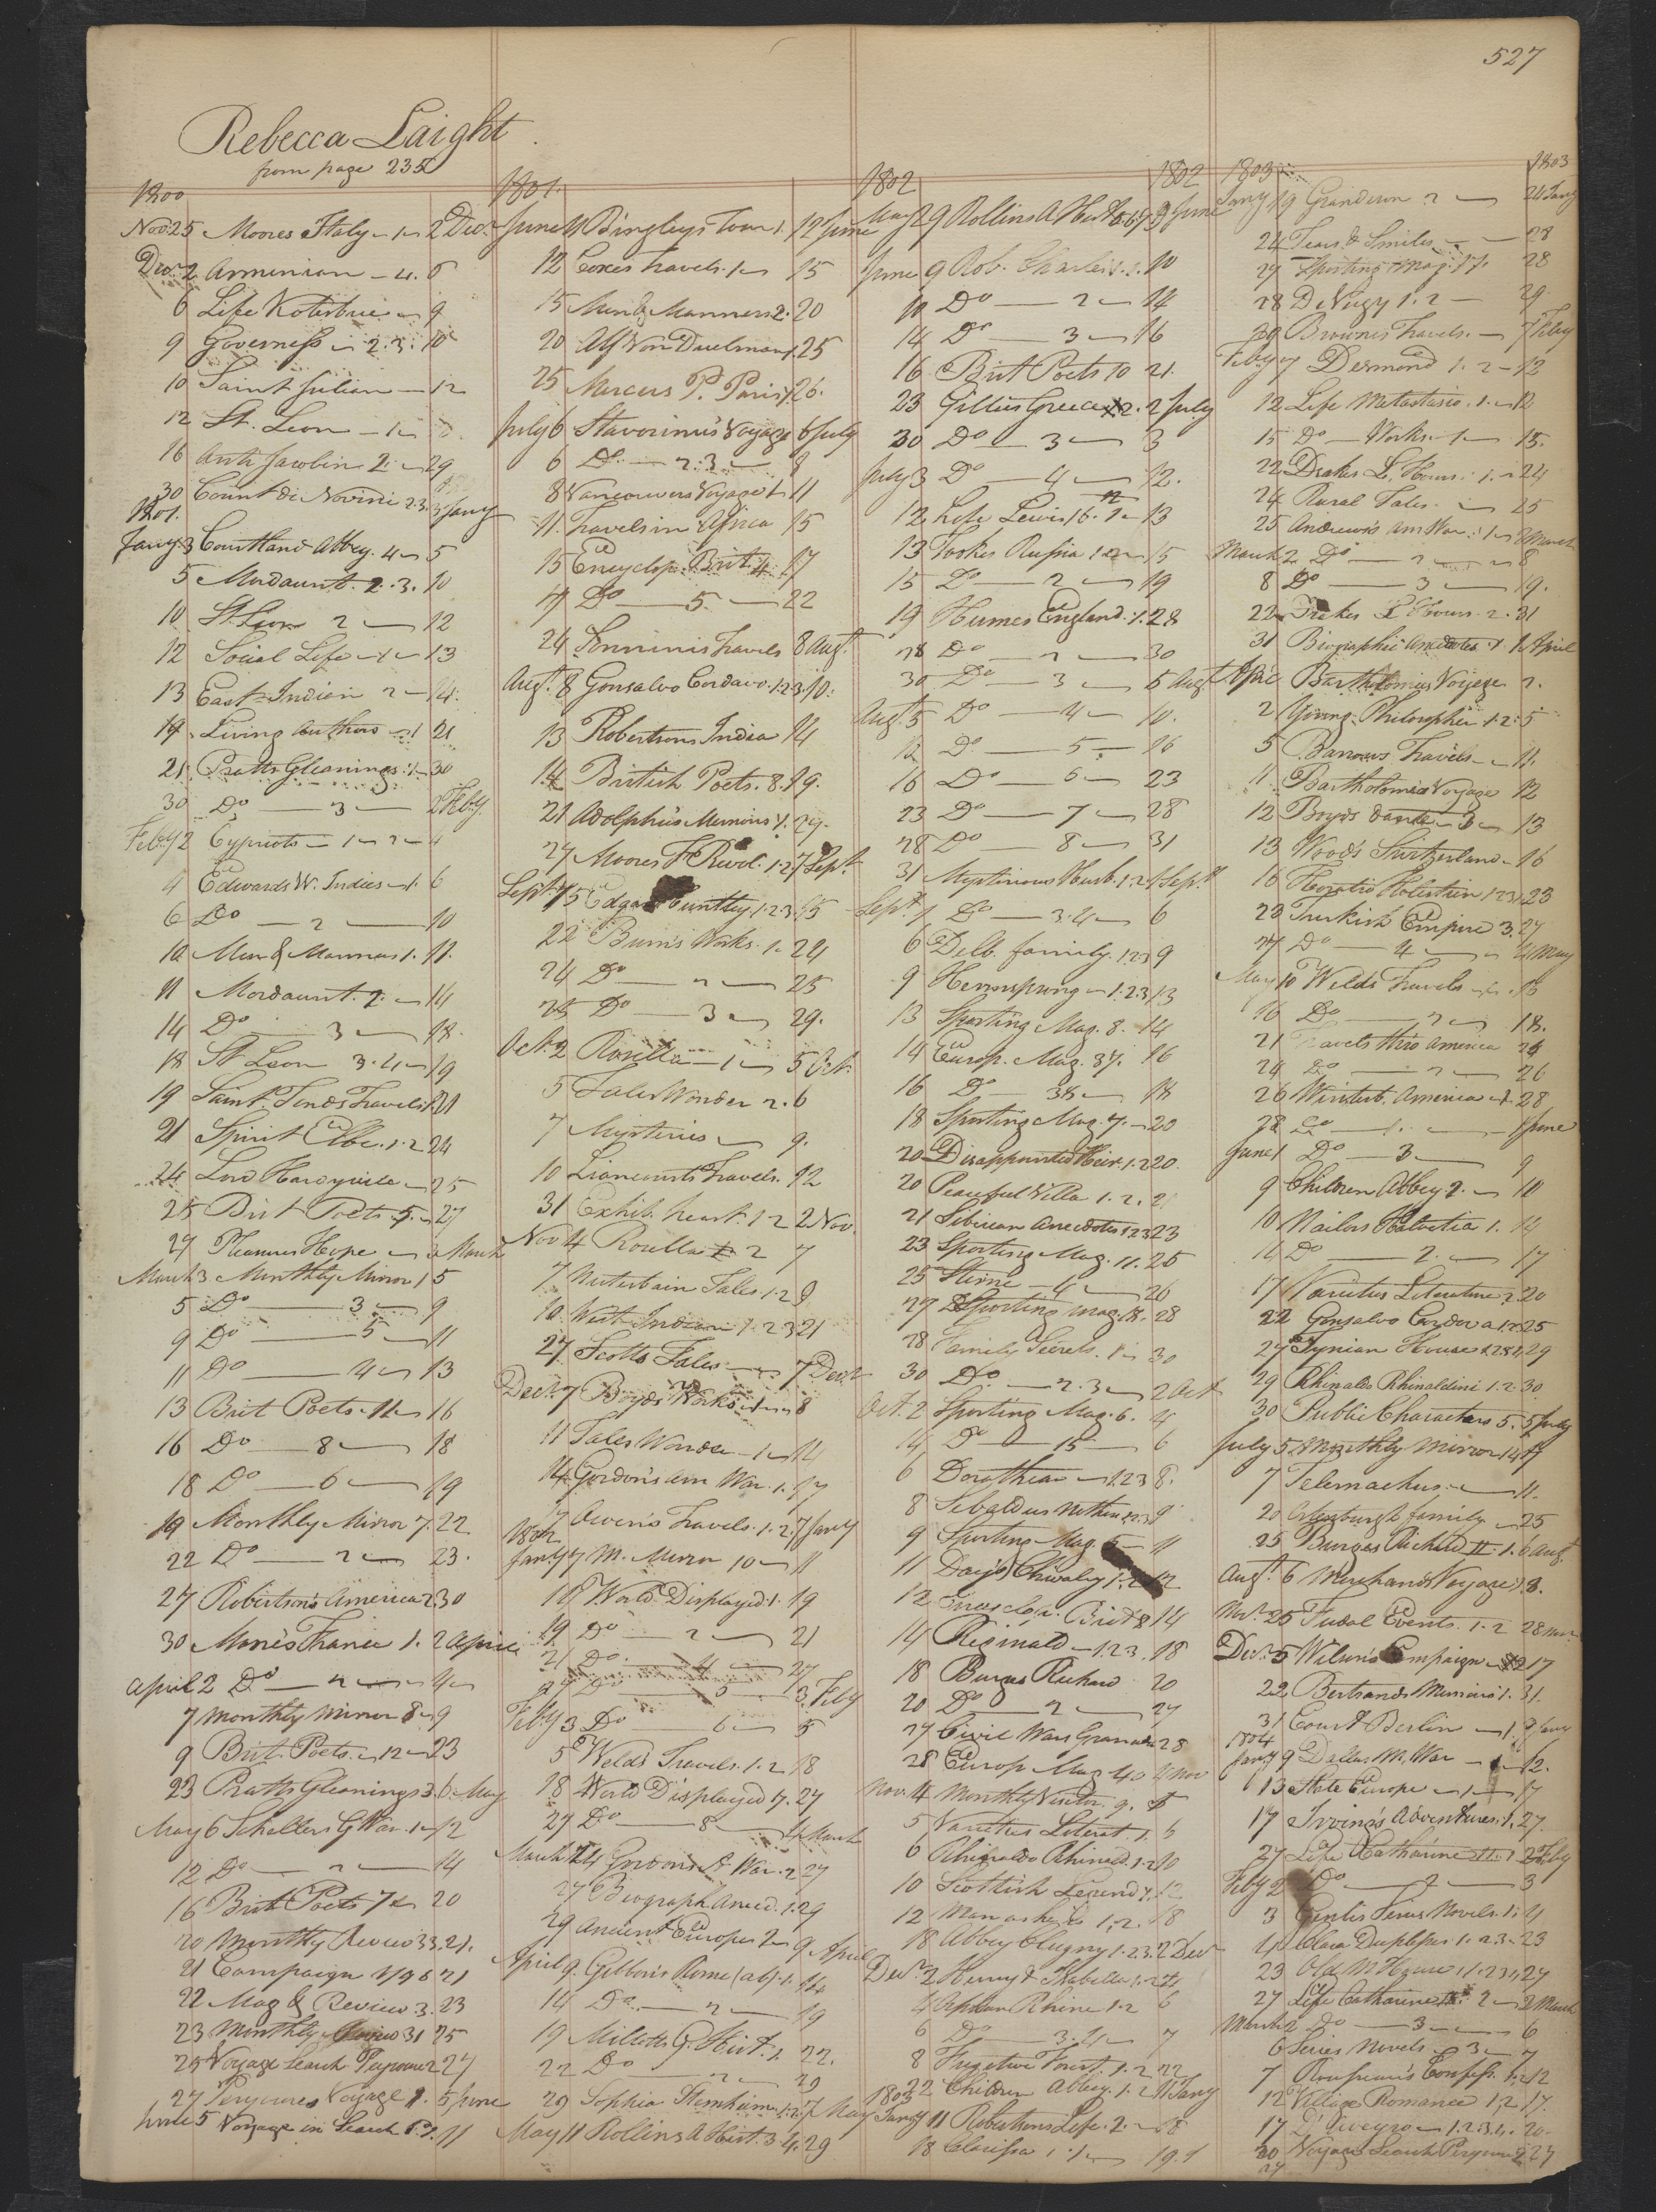 527
Rebecca Laight
from page 235
1800
Nov 25 Moores Italy 1 2 Dec.
Dec. 2 Armenian 4. 6
6 Life Kotzebue 9
9 Governess 2.3. 10
10 Saint Julien 12
12 St. Leon 1
16 Anti Jacobin 2. 29
30 Count di Novini 2.3. 3 Jany
1801.
Jany 3 Courtland Abbey. 4 5
5 Mordaunt 2.3. 10
10 St Leon 2 12
12 Social Life 1 13
13 East Indian 2 14.
14 Living Authors 1 21
21 Pratts Gleanings 1 30
30 Do 3 2 Feby.
Feby 2 Cypriots 1 2 4
4 Edwards W. Indies 1. 6
6 Do 2 10
10 Men & Manners 1. 11.
11 Mordaunt. 2. 14
14 Do 3 18.
18 St Leon 3.4 19
19 Saint Fonds Travels 1 21
21 Spirit Elbe. 1.2 24
24 Lord Hardyville 25
25 Brit Poets 5. 27
27 Pleasures Hope 3 March
March 3 Monthly Mirror 1 5
5 Do 3 9
9 Do 5 11
11 Do 4 13
13 Brit Poets 11 16
16 Do 8 18
18 Do 6 19
19 Monthly Mirror 7. 22
22 Do 2 23.
27 Robertson's America 2 30
30 Moore's France 1. 2 April
April 2 Do 2 4
7 Monthly Mirror 8 9
9 Brit. Poets 12 23
23 Pratts Gleanings 3 6 May
May 6 Schellers G War. 1 12
12 Do 2 14
16 Brit Poets 7 20
20 Monthly Review 33. 21.
21 Campaign 1796 21
22 Mag & Review 3. 23
23 Monthly Review 31 25
25 Voyage Search Peyrouse 2 27
27 Peyrouse Voyage 1. 5 June
June 5 Voyage in Search 1.2. 11
1801.
June 11 Bingleys Tour 1. 12 June
12 Coxes travels. 1 15
15 Men & Manners 2. 20
20 Alf Von Duelman 1. 25
25 Mercers P. Paris 1 26.
July 6 Stavorinus Voyage 6 July
6 Do 2.3 8
8 Vancouvers Voyage 1 11
11. Travels in Africa 15
15 Encyclop. Brit. 4 17
17 Do 5. 22
24 Sonninis Travels 8 Augt.
Augt. 8 Gonsalvo Cordavo. 1.2.3. 10.
13 Robertsons India 14
14 British Poets. 8. 19.
21 Adolphus Memoirs 1. 27.
27 Moores F Revol. 1.2 7 Sept.
Sept. 7 5 Edgar Huntley 1.2.3. 15
22 Burn's Works. 1. 24
24 Do 2 25
25 Do 3 29.
Oct. 2 Rosella 1 5 Oct.
5 Tales Wonder 2. 6
7 Mysteries 9.
10 Liancourts Travels. 12
31 Exhib. heart. 1 2 2 Nov.
Nov 4 Rosella 2 7
7 Winterbain Tales 1.2 9
10. West Indian 1.2 3 21
27 Scotts Tales 7 Decr.
Decr. 7 Boyds Works 1 8
11 Tales Wonder 1 14
14 Gordon's Am War. 1. 17
17 Owen's Travels. 1.2. 7 Jany
1802
Jany 7 M. Mirror 10 11
18 World Displayed. 1. 19
19 Do 2 21
21 Do 4 27
27 Do 5 3. Feby
Feby 3 Do 6 5
5 Welds Travels. 1.2 18
18 World Displayed 7. 27
27 Do 8 4 March
March 24 Gordons A War. 2 27
27 Biograph. Anecd. 1. 29
29 Ancient Europe 2 9 April
April 9. Gibbon's Rome (ab) 1. 14
14 Do 2 19
19 Millotts G. Hist. 1. 22.
22 Do 2 29
29 Sophia Sternheim. 1.2. 7 May
May 11 Rollins A Hist. 3.4. 29
1802 1802
May 29 Rollins A Hist 5.6.7 9 June
June 9 Rob. Charles V. 1. 10
10 Do 2 14
14 Do 3 16
16 Brit Poets 10 21.
23 Gillies Greece 2. 2 July
30 Do 3 3
July 3 Do 4 12.
12 Life Lewis 16. 1 13
13 Tookes Russia 1 15
15 Do 2 19
19 Humes England. 1. 28
28 Do 2 30
30 Do 3 5 Augt
Augt. 5 Do 4 10.
12 Do 5 16
16 Do 6 23
23 Do 7 28
28 Do 8 31
31 Mysterious Husb. 1.2 1 Sept.
Sept. 1 Do 3.4 6
6 Delb. family. 1.2 3 9
9 Hermsprong 1.2.3 13
13 Sporting Mag. 8. 14
14 Europ. Mag. 37. 16
16 Do 38 18
18 Sporting Mag. 7. 20
20 Disappointed Heir. 1.2 20.
20 Peaceful Villa 1.2. 21
21 Siberian Anecdotes 1.2.3 23
23 Sporting Mag. 11. 25
25 Sterne 4 26
27 Sporting Mag. 18. 28
28 Family Secrets. 1 30
30 Do 2.3 2 Oct
Oct. 2 Sporting Mag. 6. 4
4 Do 15 6
6 Dorothea 1.2 3 8.
8 Sebaldus Nothan 1.2.3 9
9 Sporting Mag. 5 11
11 Days Chivalry 1.2 12
12 Encyclop. Brit 8 14
14 Reginald 1.2 3. 18
18 Burges Richard 20
20 Do 2 27
27 Civil Wars Granada 28
28 Europ Mag 40 4 Nov
Nov. 4 Monthly Visitor. 9. 5
5 Varieties Literat. 1. 6
6 Rhinaldo Rhinald. 1.2 10
10 Scottish Legend 1. 12
12 1.2. 18
18 Abbey Clugny 1.2.3. 2 Decr
Decr. 2 Henry & Isabella 1.2 4
4 Orphan Rhine 1.2 6
6 Do 3.4 7
8 Fugitive Forest. 1.2 22
1803
22 Children Abbey. 1.2 11 Jany
Jany 11 Robertsons Life. 2. 18
18 Clarissa 1. 19.
1803 1803
Jany 19 Grandison 2 24 Jany
24 Tears & Smiles 28
27 Sporting Mag. 17. 28
28 1.2 29
29 Brownes Travels. 7 Feby
Feby 7 Desmond 1.2 12
12 Life Metastasio. 1. 12
15 Do Works. 1 15.
22 Drakes L. Hours. 1. 24
24 Rural Tales. 25
25 Andrews Am War. 1 2 March
March 2 Do 2 8
8 Do 3 19.
22 Drakes L Hours. 2. 31
31 Biographic Anecdotes 1 1 April
April Bartholomius Voyage 2.
2 Young Philosopher 1.2. 5
5 Barrows Travels 11.
11 Bartholomius Voyage 12
12 Boyds Dante 3 13
13 Wood's Switzerland 16
16 Horatio Holstein 1.2 3 23
23 Turkish Empire 3. 27
27 Do 4 4 May
May 10 Welds Travels 1 16
16 Do 2 18.
21 Travels thro America 24
24 Do 2 26
26 Winterb. America 1. 28
28 Do 1 June
June 1 Do 3 9
9 Children Abbey 2. 10
10 Nailors Helvetia 1. 14
14 Do 2. 17
17 Varieties Literature 2 20
22 Gonsalvo Cordova 1.2.3 25
27 Tynian House 1.2.3.4 29
29 Rhinaldo Rhinaldini 1.2. 30
30 Public Characters 5. 5 July
July 5 Monthly Mirror 14 7
7 Telemachus. 11.
20 Ortenburgh family 25
25 Burges Richard II. 1. 6 Augt
Augt. 6 Merchands Voyage 1. 8.
Nov. 25 Feudal Events. 1.2 28 Nov.
Decr. 5 Wilson's Campaign 17
22 Bertrands Memoirs 1. 31.
31 Court Berlin 1. 9 Jany
1804
Jany 9 Dallas M. War 1 12.
13 State Europe 1 17
17 Irving's Adventures. 1. 27
27 Life Catharine II. 1 2 Feby
Feby 2 Do 2 3
3 Genlis Series Novels. 1. 4
4 Clara Duplessis. 1.2.3. 23
23 Old M House 1.2.3.4 27
27 Life Catharine II. 2 2 March
March 2 Do 3 6
6 Series Novels. 3. 7
7 Rousseau's Confess. 1.2 12
12 Village Romance 1.2 17.
17 1.2.3.4. 20.
20 Voyage Search Peyrouse 2 27
27